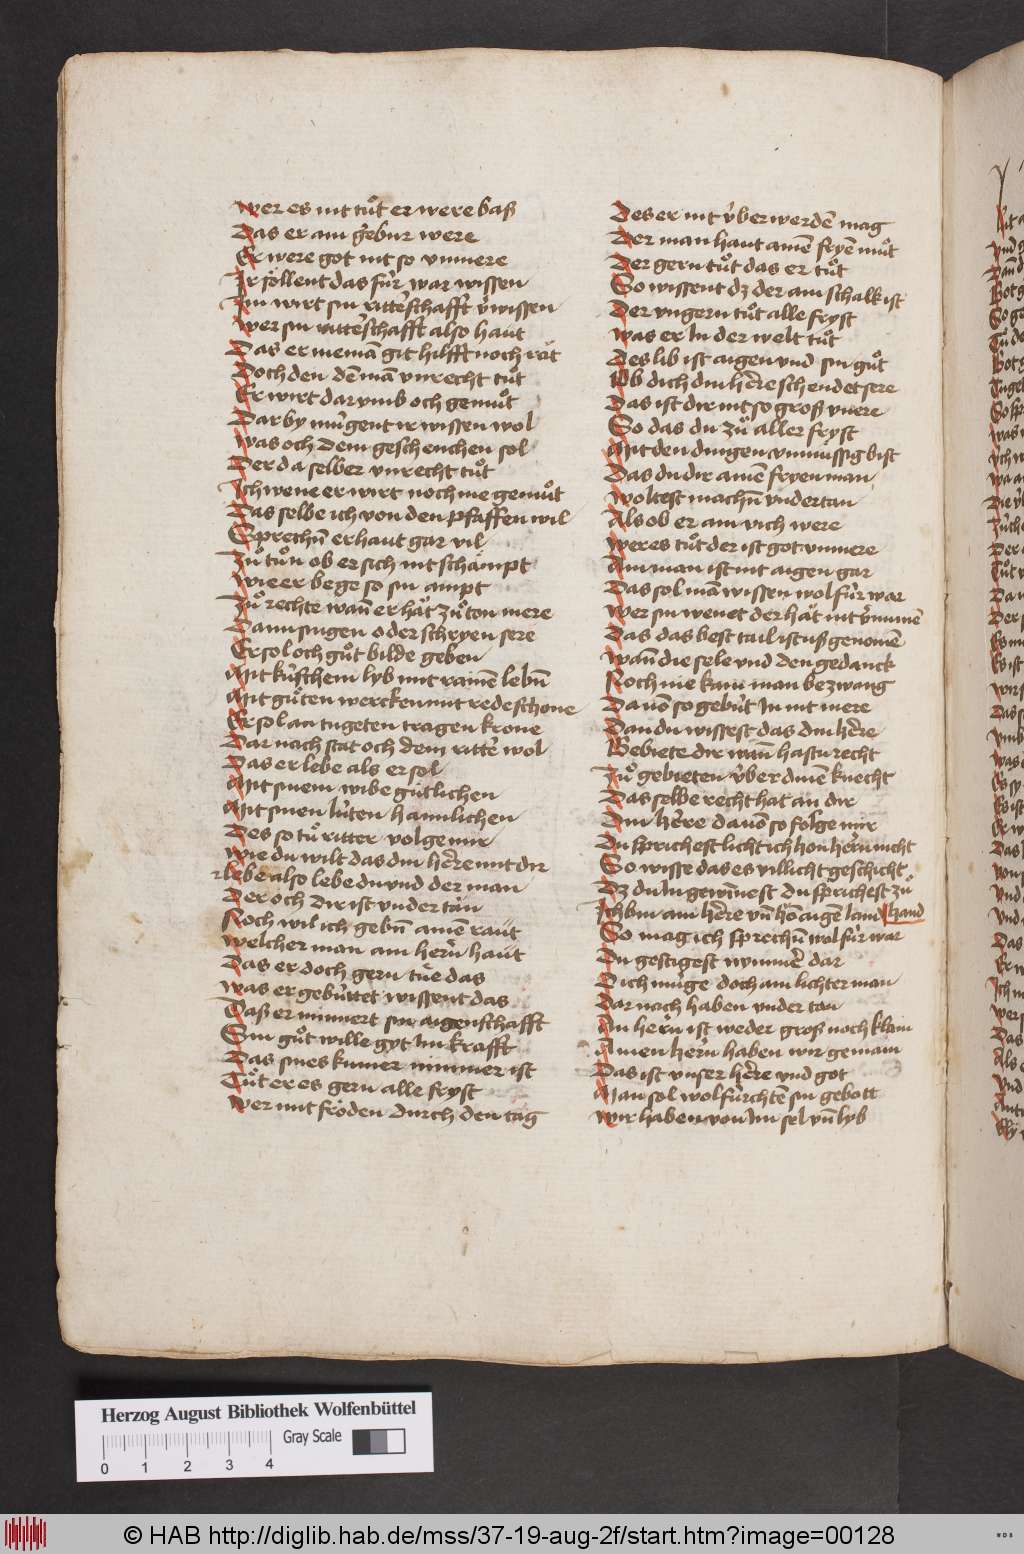 Wer es nit tuͦt er were baß
Das er ain gebur were
Er were got nit so vnmere
Ir söllent das fúr war wissen
Im wirt sin ritterschafft v̓wissen
Wer sin ritterschafft also haut
Das er nieman̄ git hilfft noch rät
Doch den dē man vnrecht tuͦt
Er wirt dar vmb och gemuͦt
Dar by múgent ir wissen wol
Was och dem geschenchen sol
Der da selber vnrecht tuͦt
Ich wene er wirt noch me gemuͦt
Das selbe ich von den pfaffen wil
Sprechn̄ er haut gar vil
Zuͦ tuͦn ob er sich nit schämpt
Wie er bege so sin ampt
Zuͦ rechte wan̄ er hät zuͦ ton mere
Dann singen oder schryen sere
Er sol och guͦt bilde geben
Mit kúschem lyb mit rainē lebn̄
Mit guͦten wercken mit rede schone
Er sol an tugeten tragen krone
Dar nach stat och dem ritter̓ wol
Das er lebe als er sol
Mit sinem wibe gútlichen
Mit sinen lúten haimlichen
Des so tuͦ ritter volge mir
Wie du wilt das din her̓re mit dir
lebe also lebe du vnd der man
Der och dir ist vnder tän
Noch wil ich gebn̄ aine raüt
Welcher man ain herrn̓ haüt
Das er doch gern tüe das
Was er gebúttet wissent das
Daß er minnert sin aigenschafft
Sin guͦt wille gyt Im krafft
Das sines kumer nimmer ist
Tuͦt er es gern alle fryst
Wer mit fröden durch den tag
Des er nit v̓berwerdē mag
Der man haut ainē fryē muͦt
Der gern tuͦt das er tuͦt
So wissent dz der ain schalk ist
Der vngern tuͦt alle fryst
Was er In der welt tuͦt
Des lib ist aigen vnd sin guͦt
Ob dich din her̓re schendet sere
Das ist dir nit so groß vnere
So das du zuͦ aller fryst
Mit den dingen vnmüssig bist
Das du dir ainē fryen man
Woltest machn̄ vndertan
Als ob er ain vich were
Wer es tuͦt der ist got vnmere
Ain man ist nit aigen gar
Das sol man̄ wissen wol fúr war
Wer sin wenet der hät nit v̓nomē
Das das best tail ist uß genomē
Wan̄ die sele vnd den gedanck
Noch nie kain man bezwang
Dauō so gebút In nit mere
Dan du wissest das din her̓re
Gebiete dir wan̄ hastu recht
Zuͦ gebieten v̓ber dinē knecht
Das selbe recht hat an dir
Din her̓re dauō so folge mir
Du sprichest licht ich hon herrn̓ nicht
So wisse das es villicht geschicht
Dz du In gewinest du sprichest zuͦ
Ich bin ain her̓re vn̄ hō aigē land hand
So mag ich sprechn̄ wol fúr war
Du gestigest nymmer̓ dar
Dich múge doch ain lichter man
Dar nach haben vnder tan
Ain herrn̓ ist weder groß noch klain
Ainen herrn̓ haben wir gemain
Das ist vnser her̓re vnd got
Man sol wol fúrchtē sin gebott
Wir haben von Im sel vn̄ lyb
Herzog August Bibliothek Wolfenbüttel
Gray Scale
0 1 2 3 4
© HAB http://diglib.hab.de/mss/37-19-aug-2f/start.htm?image=00128